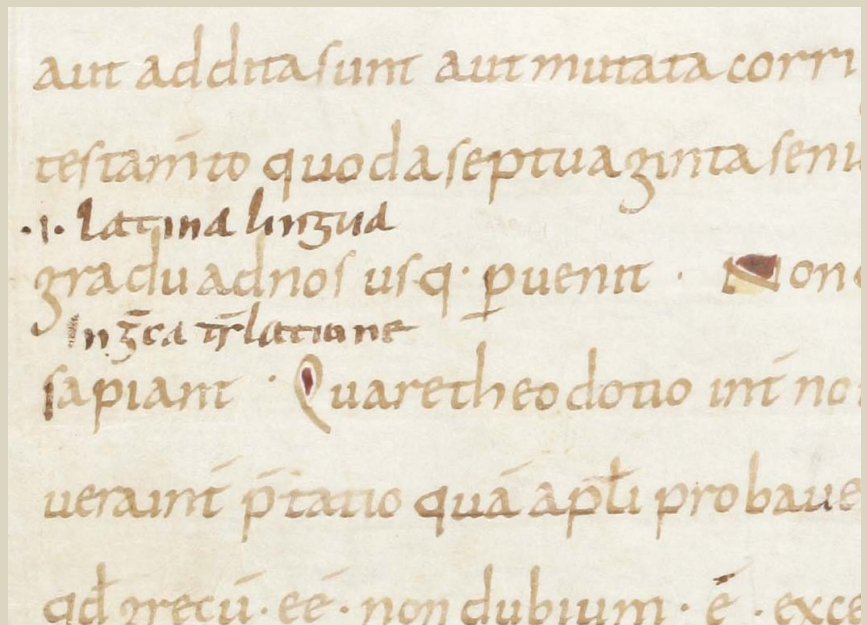 aut addita sunt aut mutata corri
testam̄to quod a septuaginta seni
·i· latina lingua
gradu ad nos usq· ꝑuenit · Non
In gr̄ca tr̄latione
sapiant · Quare theodotio int̄ no
ueraint̄ p̄tatio quā apl̄i probaue
qd̄ grecū· eē· non dubium· ē· exce